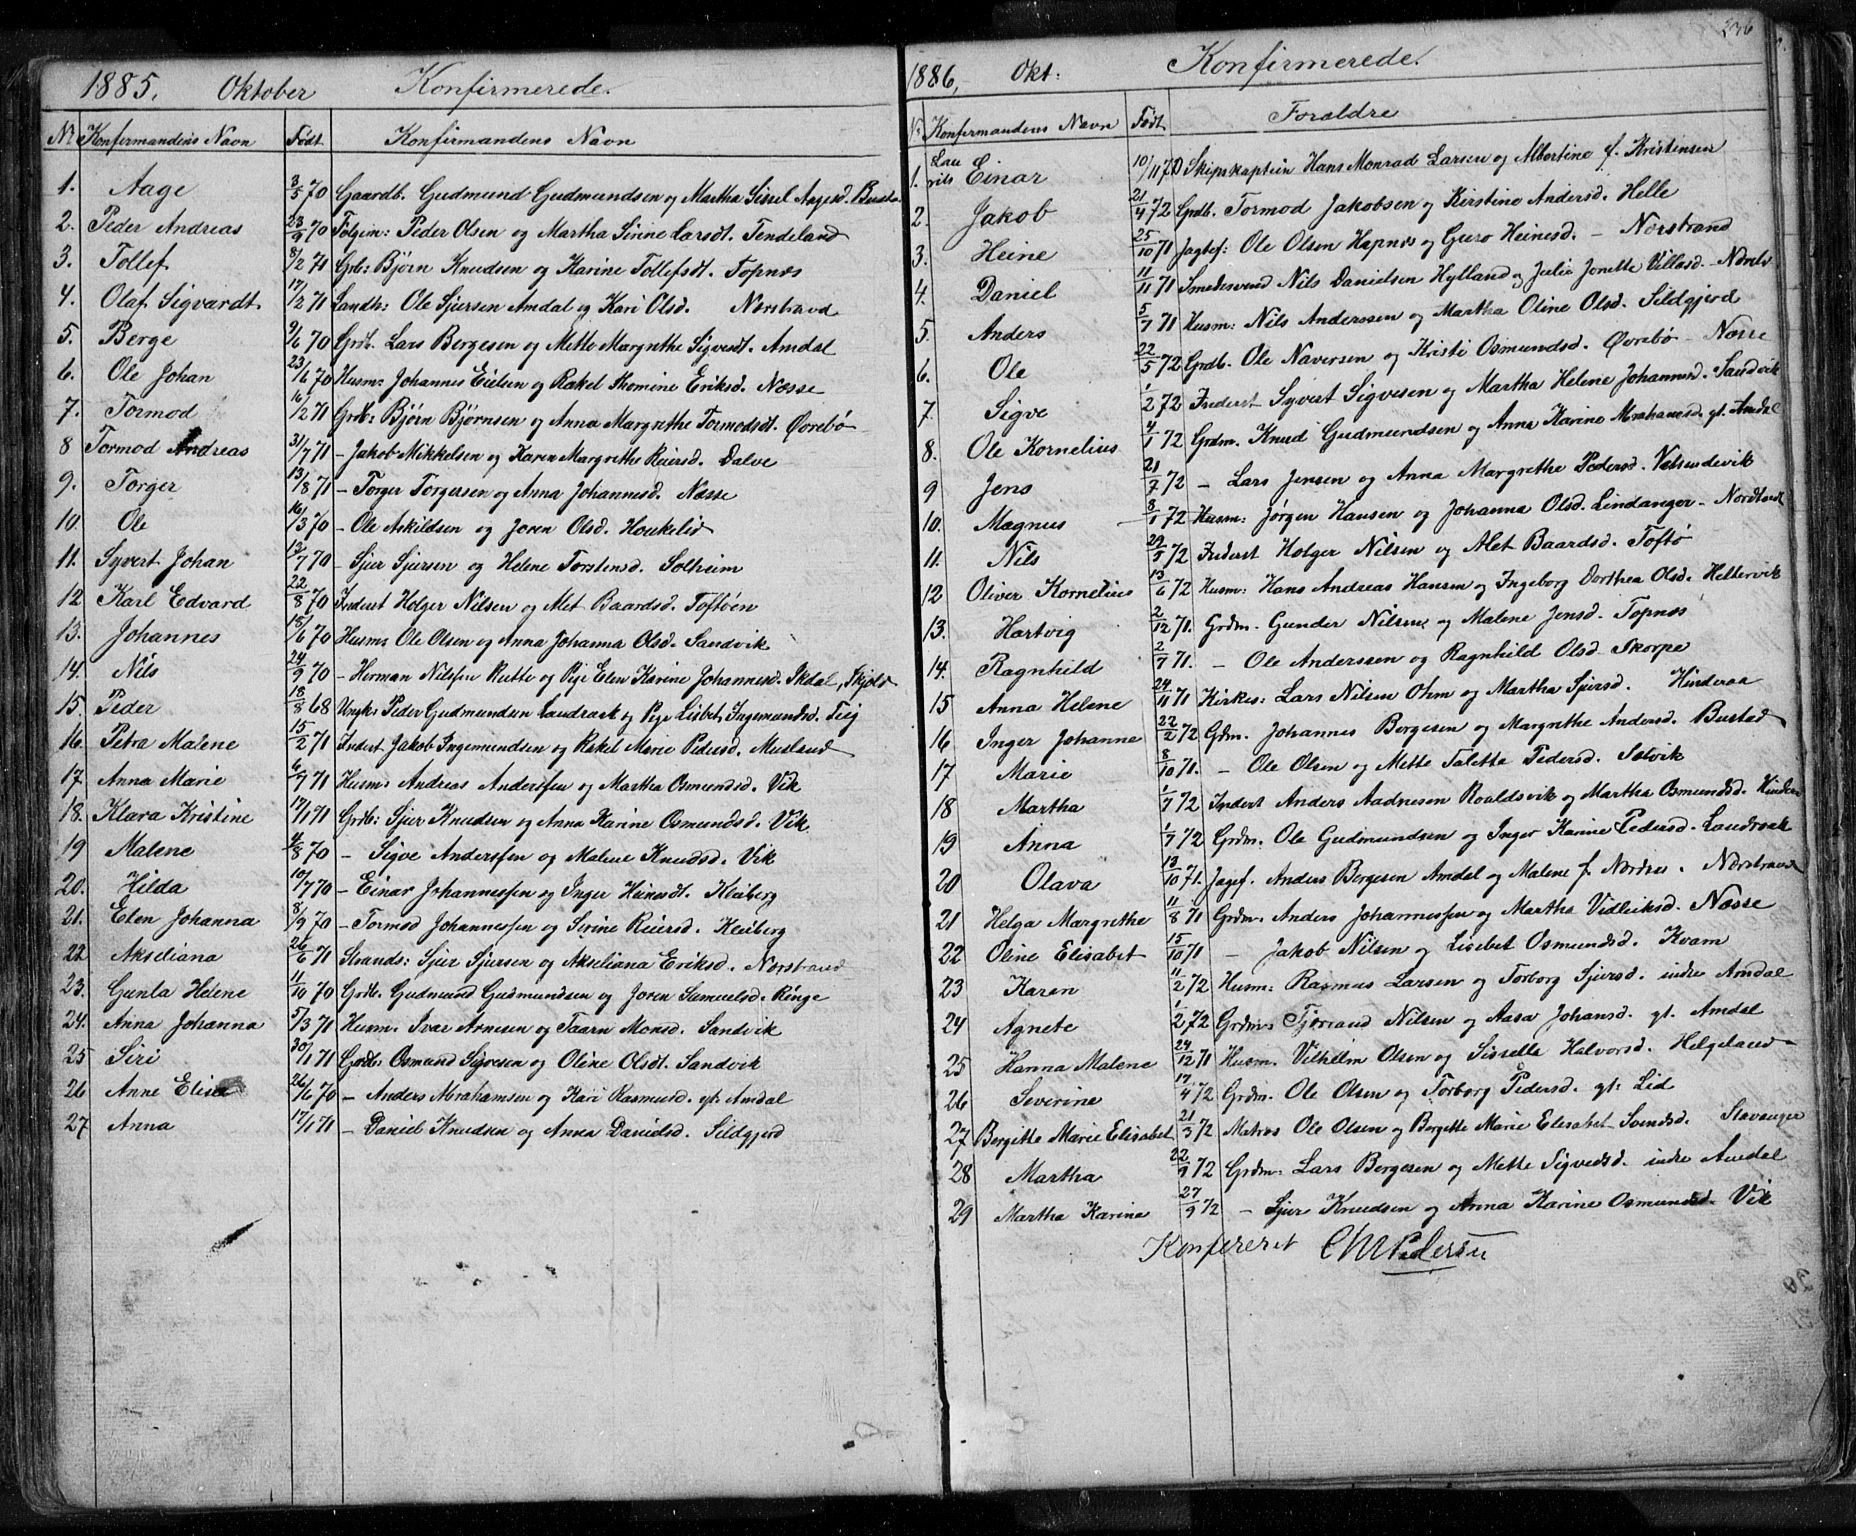 1885. Oktober Konfirmerede.
Nr Konfirmandens Navn Født Konfirmandens Navn
1. Aage 3/5 70 Gaardb. Gudmund Gudmundsen og Martha Sissel Aagesd.
2. Peder Andreas 23/9 70 Følgem: Peder Olsen og Martha Serine Larsdt. Tendeland
3. Tollef 8/2 71 Grb: Bjørn Knudsen og Karine Tollefsdt. Topnæs
4. Olaf Sigvardt 17/2 71 Sandh: Ole Sjursen Amdal og Kari Olsd. Norstrand
5. Berge 9/6 70 Grdb. Lars Bergesen og Mette Margrethe Sigvesdt. Amdal
6. Ole Johan 23/6 70 Husm: Johannes Eielsen og Rakel Thomine Eriksd. Næsse
7. Tormod 16/2 71 Grb: Bjørn Bjørnsen og Anna Margrethe Tormodsdt. Øvrebø
8 Tormod Andreas 31/7 71 - Jakob Mikkelsen og Karen Margrethe Reiersd. Dalve
9. Torger 13/8 71 - Torger Torgersen og Anna Johannesd. Næsse
10. Ole 16/3 70 - Ole Askildsen og Joren Olsd. Houkelid
11. Syvert Johan 12/7 70 - Sjur Sjursen og Helene Torstensd. Solheim
12 Karl Edvard 22/8 70 Inderst Holger Nilsen og Alet Baardsd. Toftøen
13. Johannes 18/6 70 Husm: Ole Olsen og Anna Johanna Olsd. Sandvik
14. Nils 24/9 70 - Herman Nilssen Rutte og Pige Elen Karine Johannesd. Ikdal, Skjold
15. Peder 18/8 68 Ungk: Peder Gudmundsen Landraak og Pige Lisbet Ingemundsd. Teig
16. Petra Malene 15/2 71 Inderst Jakob Ingemundsen og Rakel Marie Pedersd.
17. Anna Marie 6/9 71 Husm: Andreas Anderssen og Martha Osmundsd. Vik
18. Klara Kristine 17/1 71 Grdb: Sjur Knudsen og Anna Karine Osmundsd. Vik.
19 Malene 4/8 70 - Sigve Anderssen og Malene Knudsd. Vik
20. Hilda 10/7 70 - Einar Johannessen og Inger Heinesdt. Kleiberg
21. Elen Johanna 8/9 70 - Tormod Johannessen og Serine Reiersd. Kleiberg
22 Akseliana 26/6 71 Strands: Sjur Sjursen og Akseliana Eriksd. Norstrand
23. Gunla Helene 11/10 70 Grdb. Gudmund Gudmundsen og Joren Samuelsd. Ringe
24. Anna Johanna 5/3 71 Husm. Ivar Arnesen og Taarn Monsd. Sandvik
25 Siri 30/1 71 Grdb: Osmund Sigvesen og Oline Olsdt. Sandvik
26 Anne Elisa 26/6 70 - Anders Abrahamsen og Kari Rasmusd. yt. Amdal
27 Anna 17/1 71 - Daniel Knudsen og Anna Danielsd. Sildgjord
236
1886, Okt: Konfirmerede.
Nr Konfirmandens Navn Født Foraldre
1. Lauritz Einar 10/11 70 Skipskaptein Hans Monrad Larsen og Albertine f. Kristensen
2. Jakob 21/4 72 Grdb. Tormod Jakobsen og Kirstine Andersd. Helle
3. Heine 25/10 71 Jagtef: Ole Olsen Hapnæs og Guro Heinesd. - Norstrand
4. Daniel 11/11 71 Smedesvend Nils Danielsen Hylland og Julie Jonette Villasd.
5. Anders 5/7 71 Husm: Nils Anderssen og Martha Oline Olsd. Sildgjord
6. Ole 22/5 72 Grdb. Ole Naversen og Kristi Osmundsd. Øvrebø - Næsse
7. Sigve 1/2 72 Inderst Syvert Sigvesen og Martha Helene Johannesd. Sandvik
8. Ole Kornelius 4/1 72 Grdm. Knud Gudmundsen og Anna Karine Abrahamsd. yt. Amdal
9 Jens 21/7 72 - Lars Jensen og Anna Margrethe Pedersd. Vatsendevik
10. Magnus 8/1 72 Husm: Jørgen Hansen og Johanna Olsd. Lindanger -
11. Nils 29/9 72 Inderst Holger Nilsen og Alet Baardsd. Toftø
12 Oliver Kornelius 13/6 72 Husm: Hans Andreas Hansen og Ingeborg Dorthea Olsd. Hettervik
13. Hartvig 2/12 71. Grdm. Gunder Nilsen og Malene Jensd. Topnæs
14. Ragnhild 2/7 71. - Ole Anderssen og Ragnhild Olsd. Skorpe
15 Anna Helene 24/11 71 Kirkes: Lars Nilsen Ohm og Martha Sjursd. Hinderaa
16 Inger Johanne 22/2 72 Grdm. Johannes Bergesen og Margrethe Andersd. Bustad
17 Marie 8/10 71. - Ole Olsen og Mette Talette Pedersd. Sætvik
18 Martha 1/7 72 Inderst Anders Aadnesen Roaldsvik og Martha Osmundsd. Hinderaa
19 Anna 1/7 72 Grdm. Ole Gudmundsen og Inger Karine Pedersd. Landraak
20 Olava 13/10 71. Jagef. Anders Bergesen Amdal og Malene f. Nordnes. Norstrand
21 Helga Margrethe 11/8 71 Grdm. Anders Johannessen og Martha Vidleiksd. Næsse
22 Oline Elisabet 15/10 71 - Jakob Nilsen og Lisebet Osmundsd. Kvam
23 Karen 11/2 72 Husm: Rasmus Larsen og Torborg Sjursd. indre Amdal
24 Agnete 1/2 72 Grdm: Tjerand Nilsen og Aasa Johansd. yt. Amdal
25 Hanna Malene 24/12 71 Husm. Vilhelm Olsen og Sissella Halvorsd. Helgeland
26 Severine 17/4 72 Grdm. Ole Olsen og Torborg Pedersd. yt. Lid
27 Bergitte Marie Elisabet 21/3 72 Matros Ole Olsen og Bergitte Marie Elisabet Svendsd. Stavanger
28 Martha 22/9 72 Grdm: Lars Bergesen og Mette Sigvedsd. indre Amdal
29 Martha Karine 27/9 72 - Sjur Knudsen og Anna Karine Osmundsd. Vik
Konfereret CMPedersen